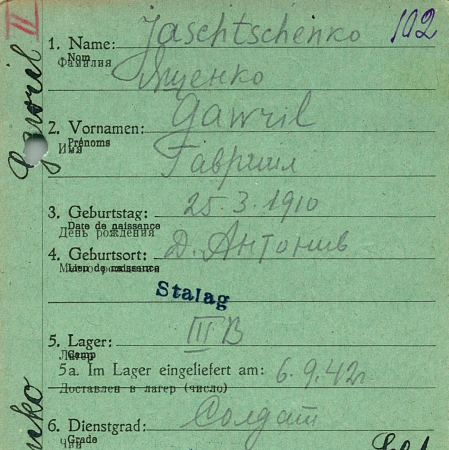 II
102
1. Name: Jaschtschenko
Nom
Фамилия
Ященко
2. Vornamen: Gawril
Prénoms
Имя
Гавриил
3. Geburtstag: 25.3.1910
Date de naissance
День рождения
4. Geburtsort: Д. Антонив
Lieu de naissance
Место рождения
Stalag
5. Lager: III B
Camp
Лагерь
5a. Im Lager eingeliefert am: 6.9.42г
Доставлен в лагер (число)
6. Dienstgrad: Солдат
Grade
Чин
Gawril